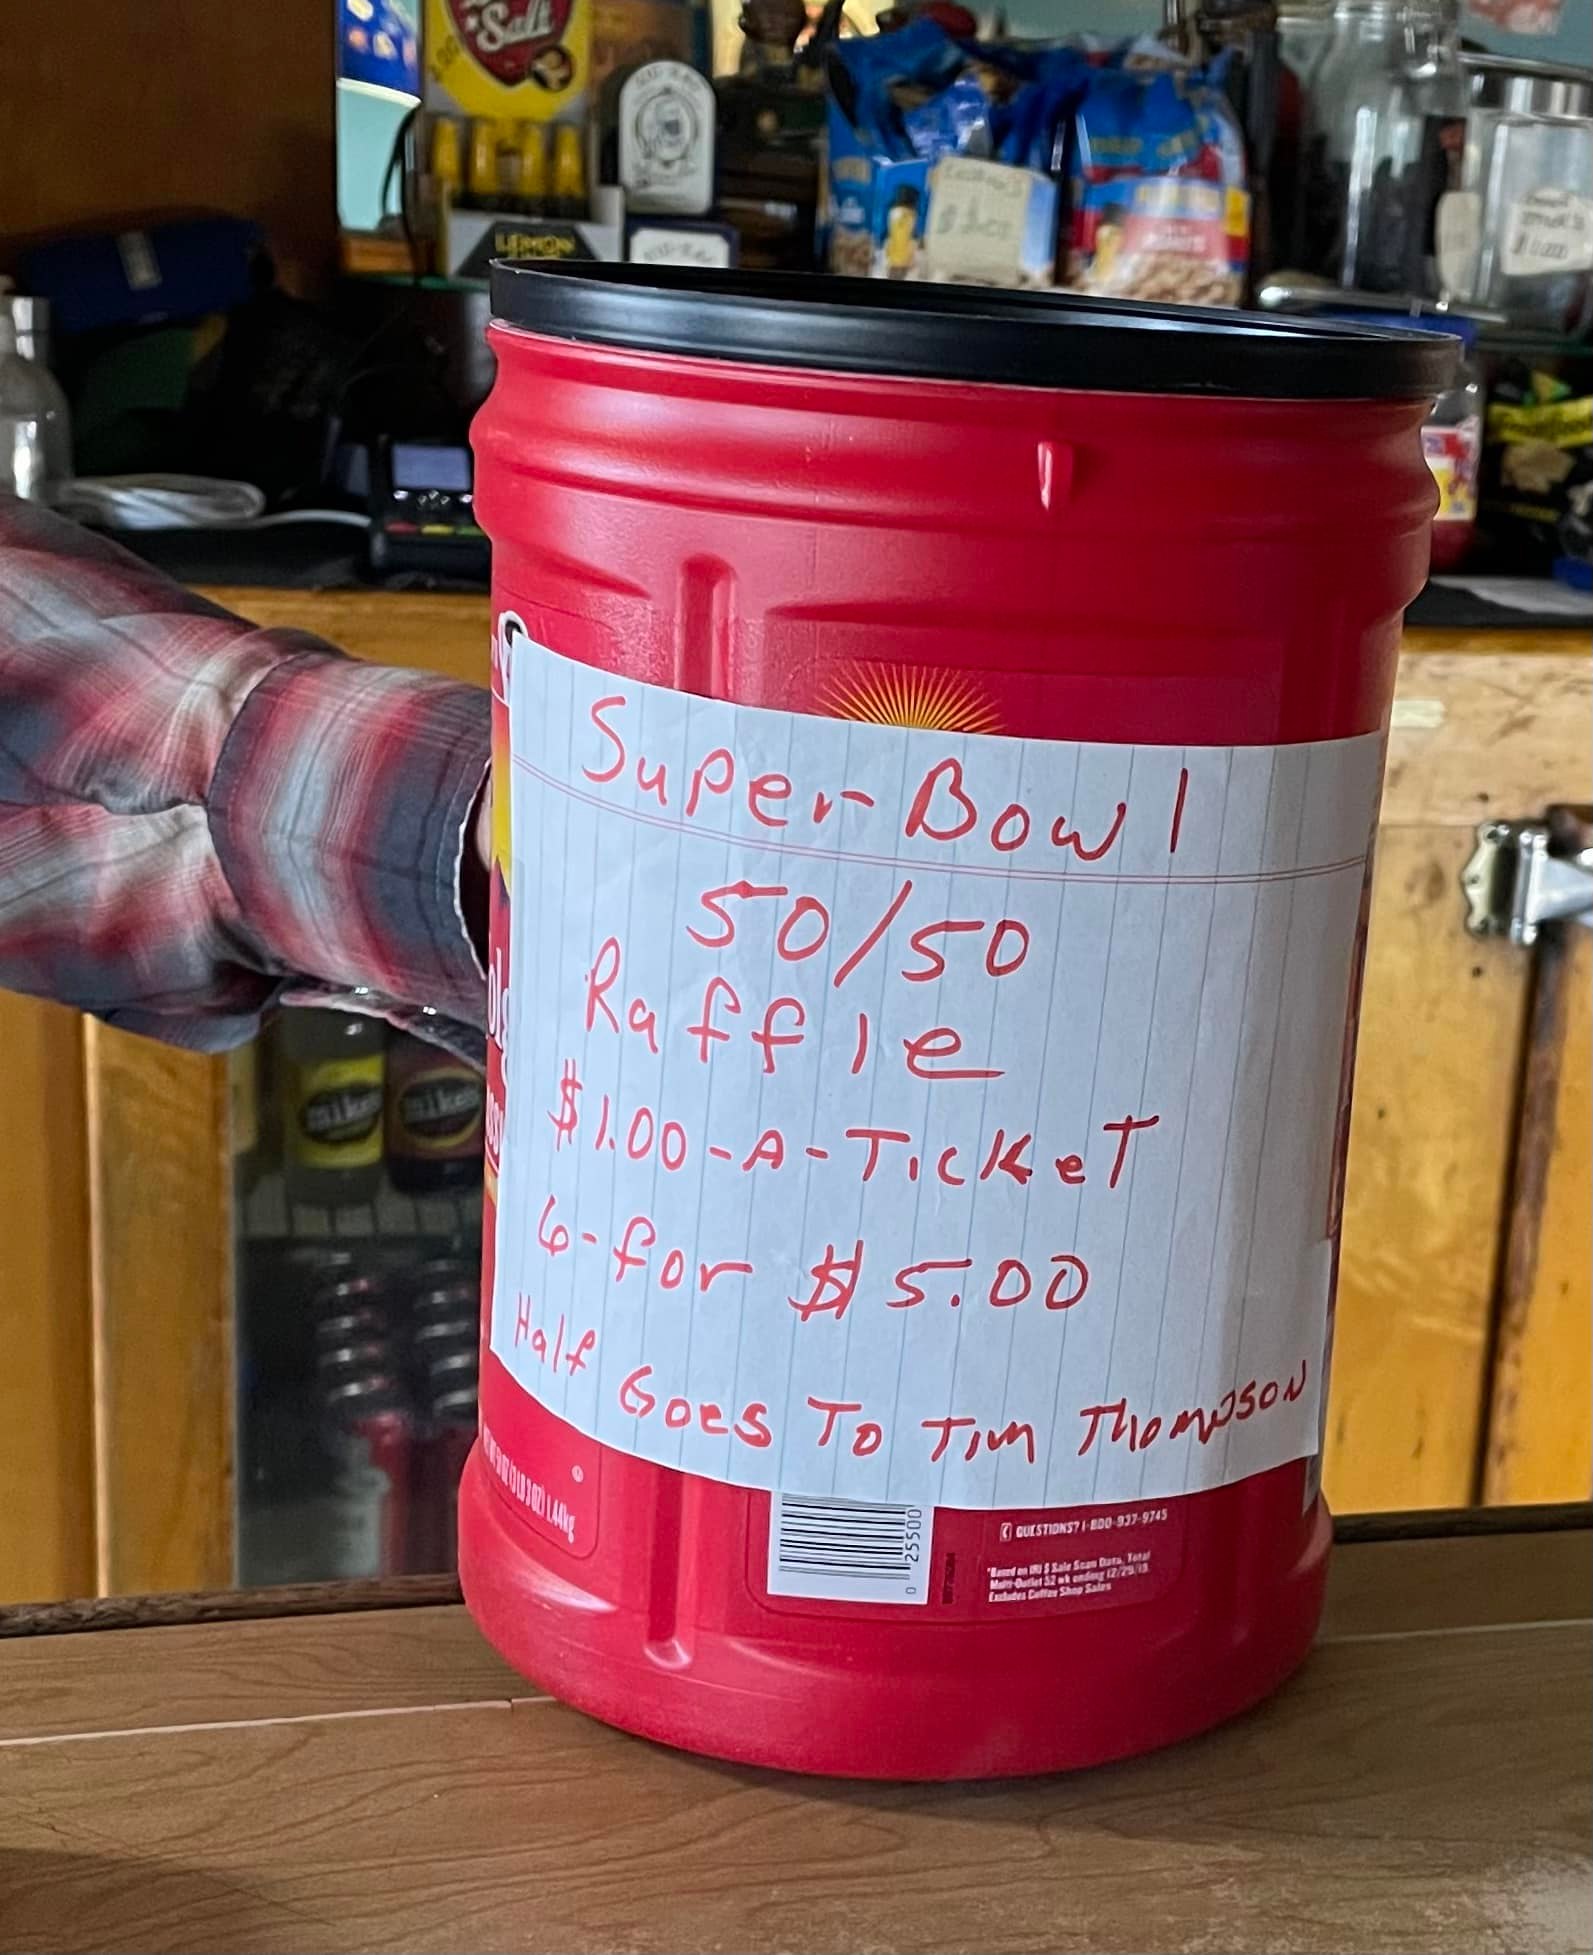 Salt
LEMON
Super-Bowl
50/50
Raffle
$1.00-A-TickeT
6-for $5.00
Half Goes To Tim Thompson
mike's
mike's
1.44kg
0 25500
QUESTIONS? 1-800-937-9745
*Based on IRI $ Sale Scan Data, Total
Multi-Outlet 52 wk ending 12/29/19.
Excludes Coffee Shop Sales